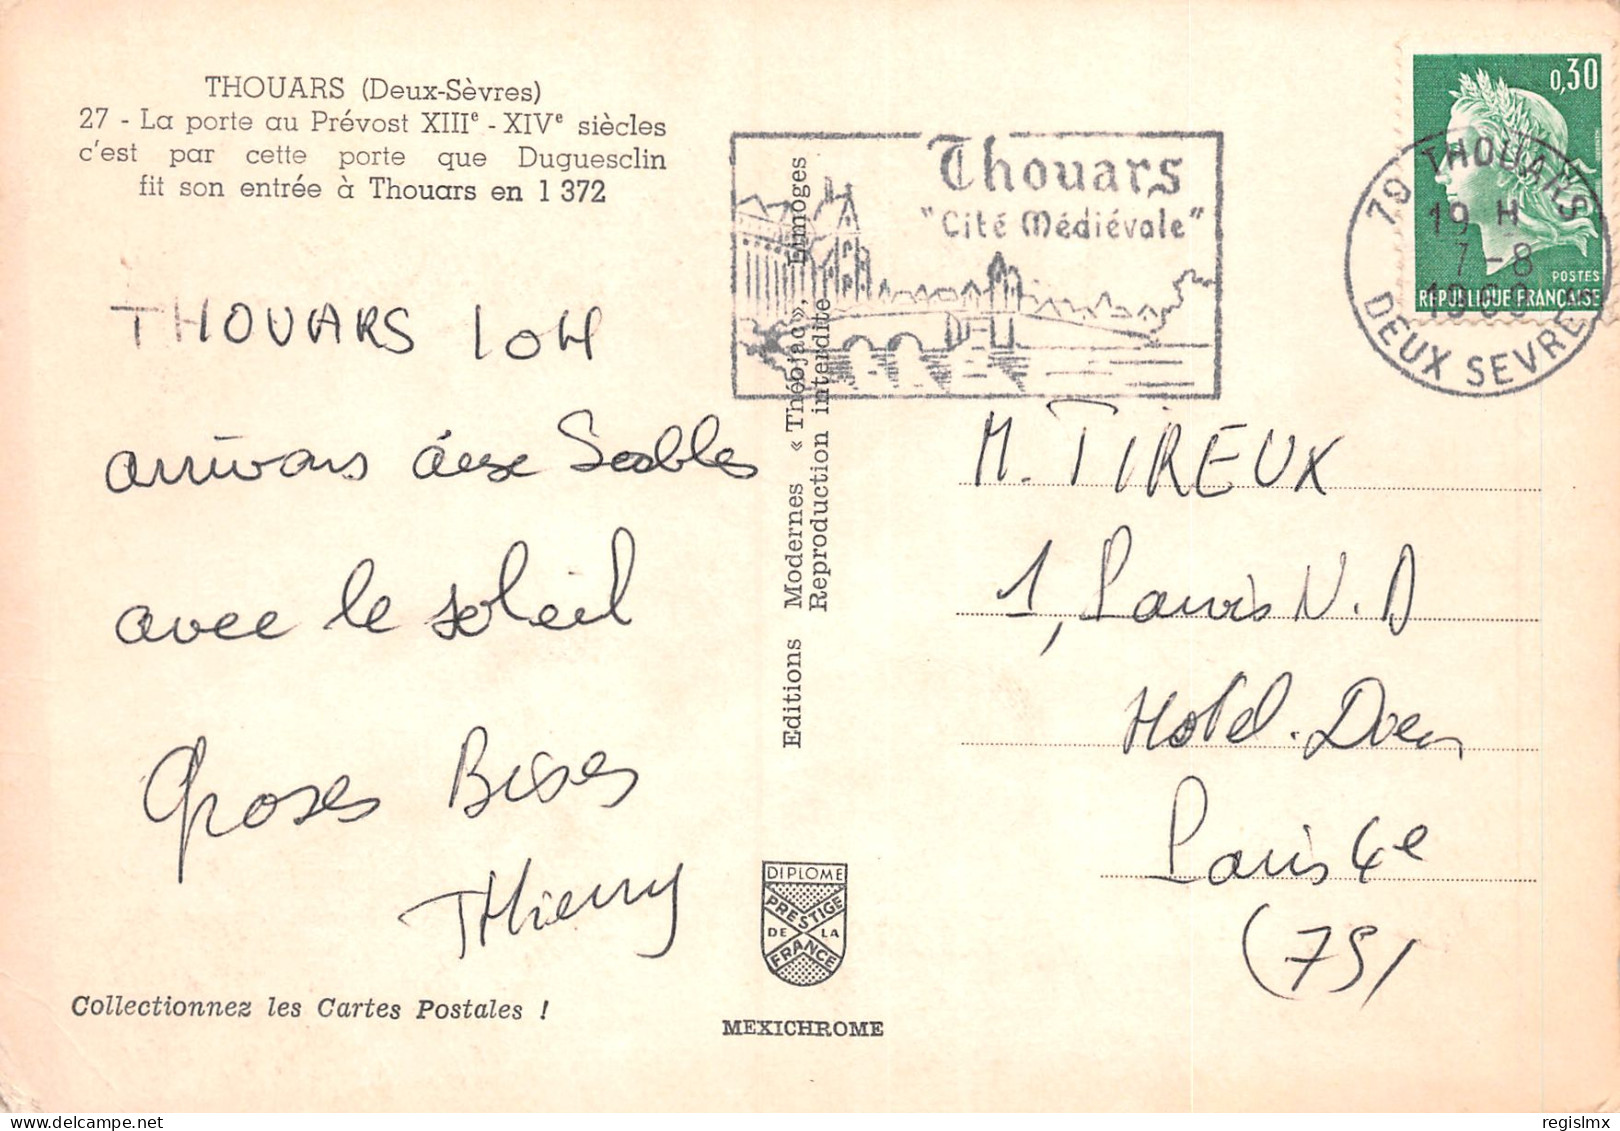 THOUARS (Deux-Sèvres)
27 - La porte au Prévost XIIIe - XIVe siècles
c'est par cette porte que Duguesclin
fit son entrée à Thouars en 1 372
THOUARS 10H
arrivons aux Sables
avec le soleil
Groses Bises
THierry
Collectionnez les Cartes Postales !
Editions Modernes « Théojac », Limoges
Reproduction interdite
DIPLOME
PRESTIGE
DE LA
FRANCE
MEXICHROME
Thouars
"Cité Médiévale"
0,30
POSTES
REPUBLIQUE FRANÇAISE
79 THOUARS
19 H
7-8
DEUX SEVRES
M. TIREUX
1, Parvis N.D
Hotel-Dieu
Paris 4e
(75)
regislmx